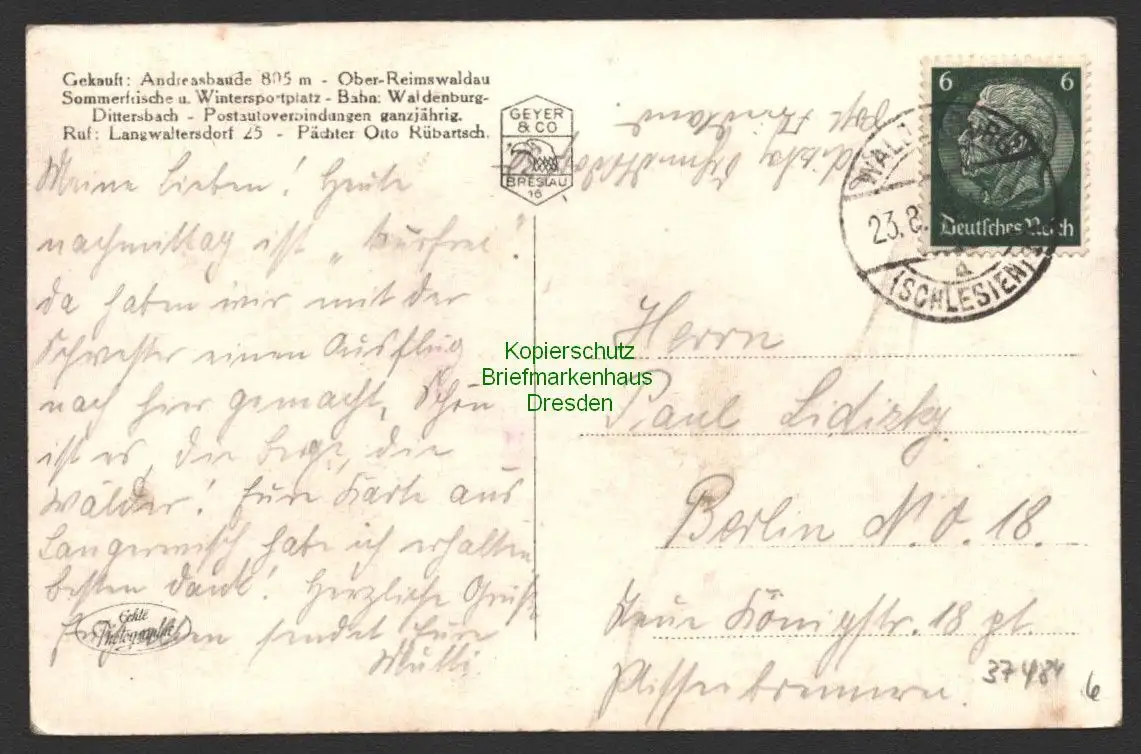 Gekauft: Andreasbaude 805 m - Ober-Reimswaldau
Sommerfrische u. Wintersportplatz - Bahn: Waldenburg-
Dittersbach - Postautoverbindungen ganzjährig.
Ruf: Langwaltersdorf 25 - Pächter Otto Rübartsch.
GEYER
& CO
BRESLAU
16
6 6
Deutsches Reich
23.8.
(SCHLESIEN)
a
Meine Lieben! Heute
nachmittag ist „kurfrei"
da haben wir mit der
Schwester einen Ausflug
nach hier gemacht, Schön
ist es, die Berge, die
Wälder! Eure Karte aus
Langerwisch habe ich erhalten
besten Dank! Herzliche Grüße
sendet Eure
Mutti
Echte
Photographie
Herrn
Paul Lidizky
Berlin N.O. 18.
Neue Königstr. 18 pt.
37484
6
Kopierschutz
Briefmarkenhaus
Dresden